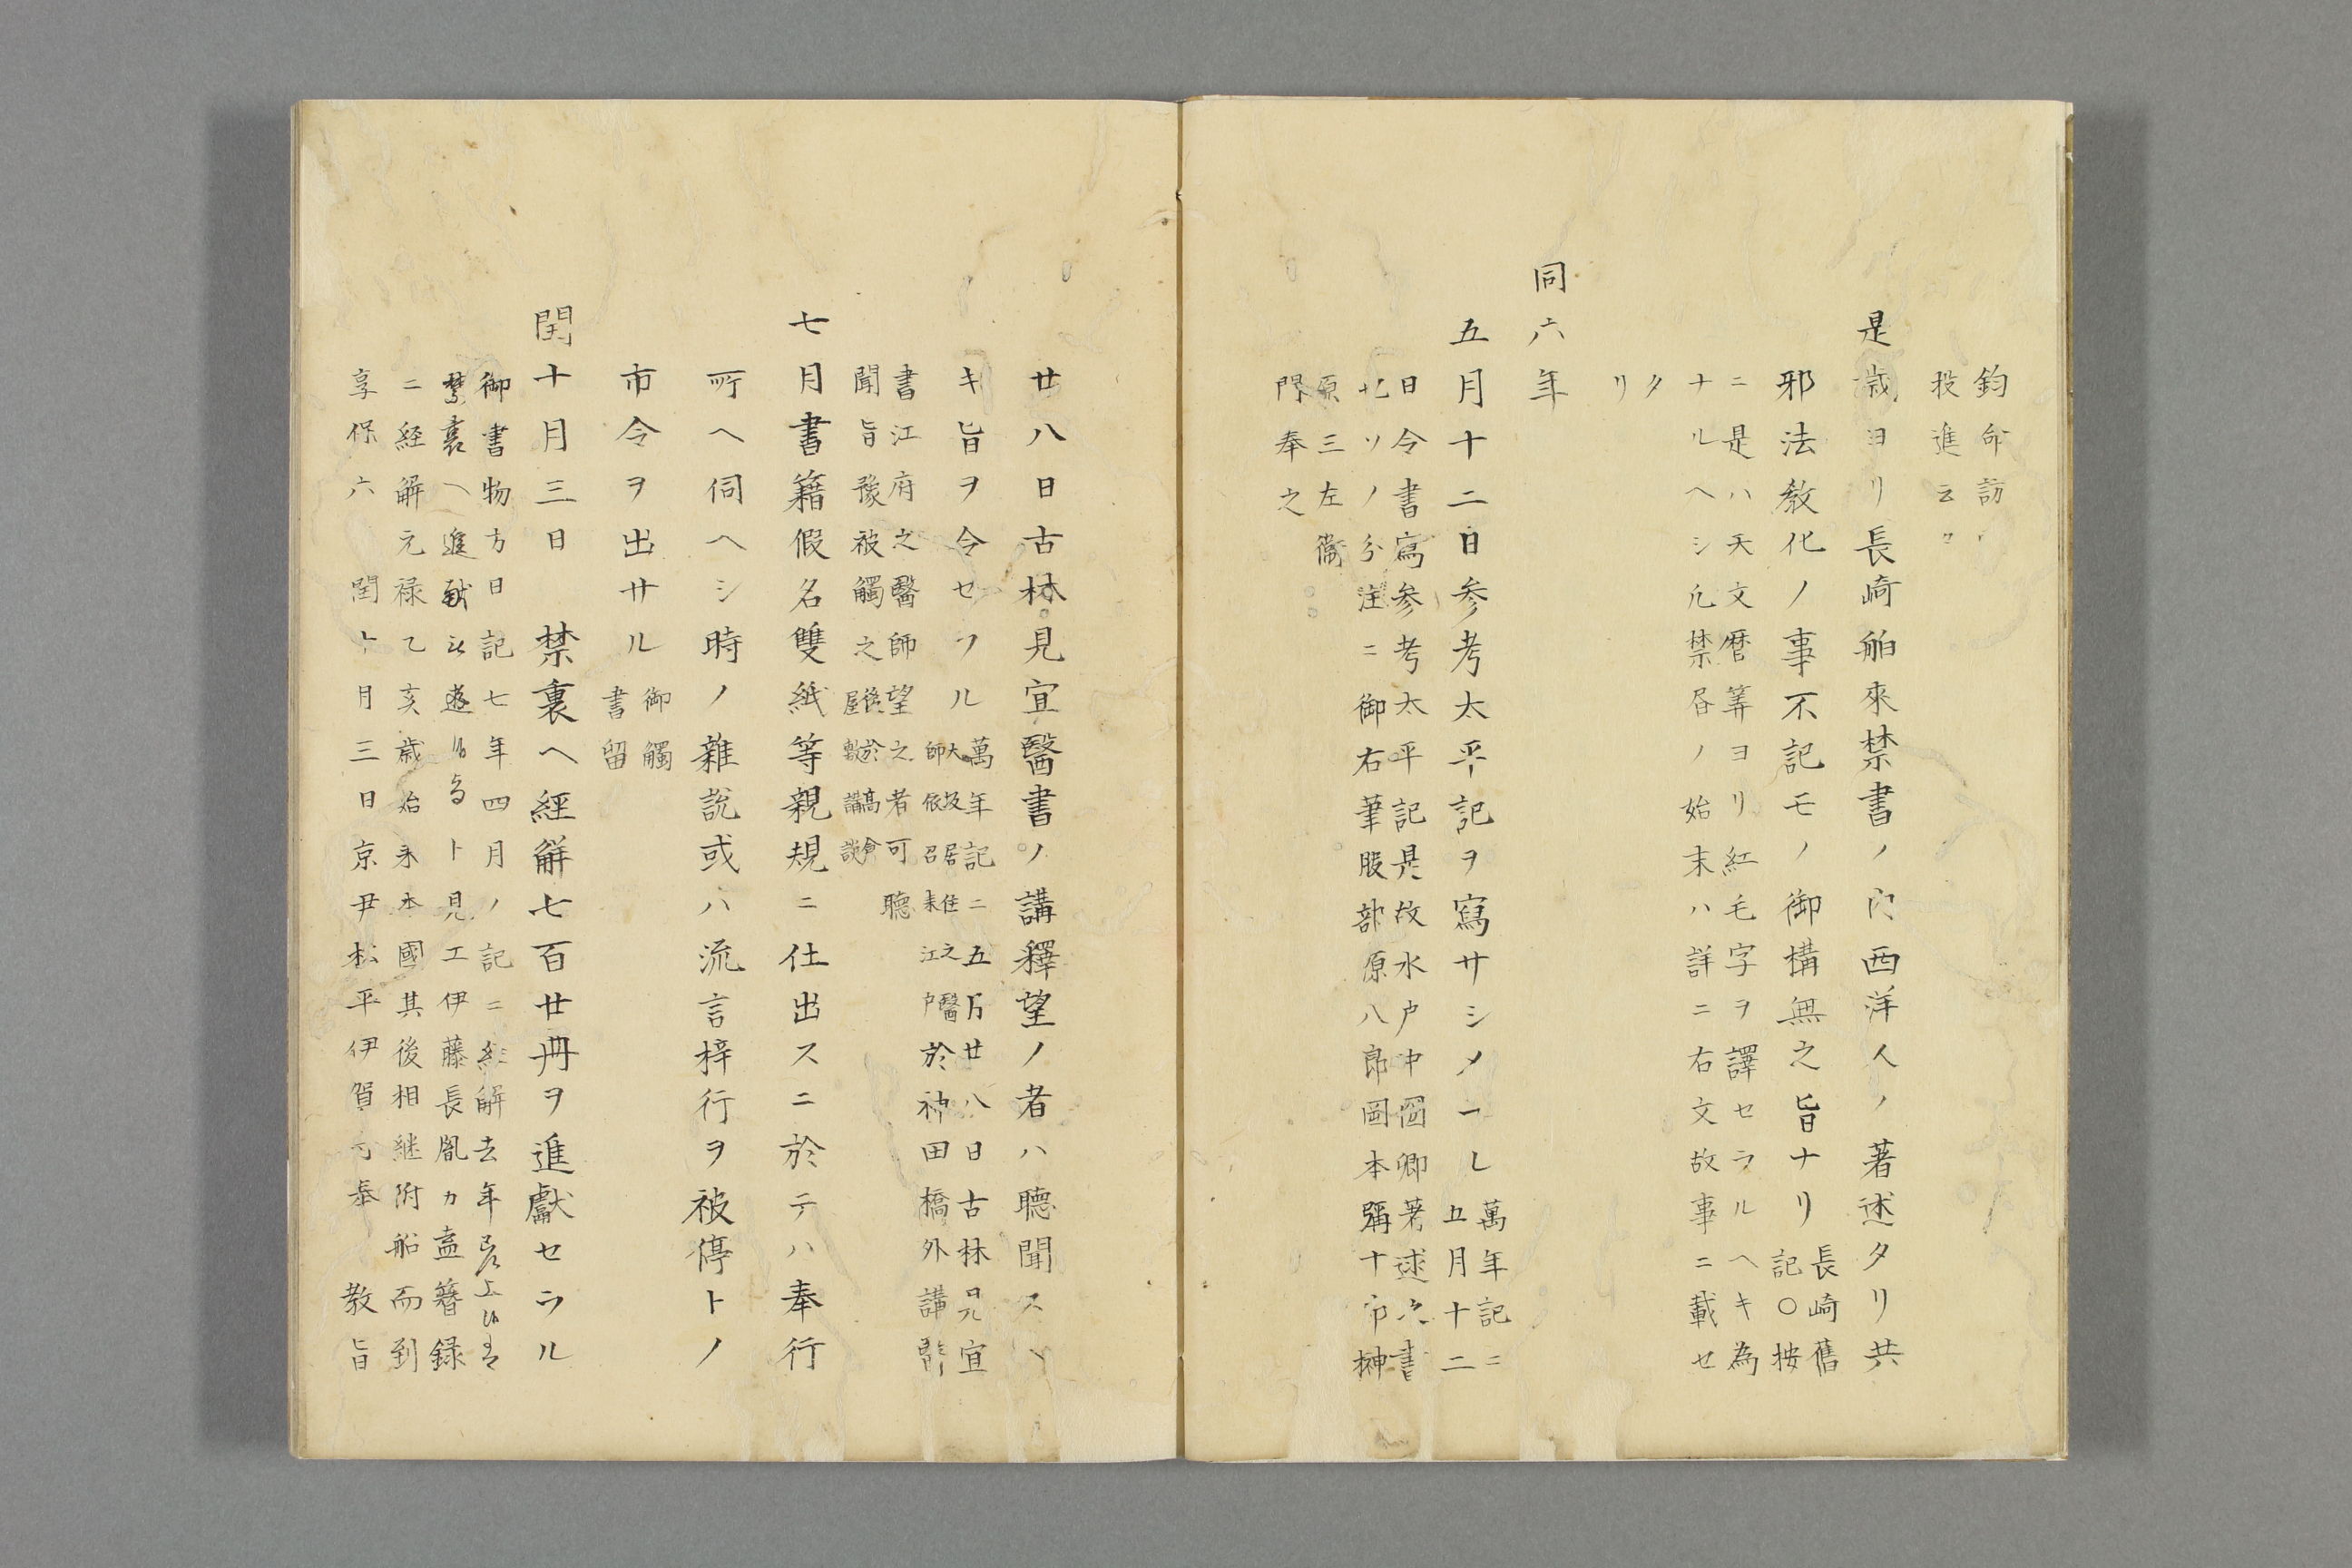 鈞命訪
投進云々
是歳ヨリ長崎舶來禁書ノ内西洋人ノ著述タリ共
邪法教化ノ事不記モノ御構無之旨ナリ
長崎舊
記〇按
ニ是ハ天文暦筭ヨリ紅毛字ヲ譯セラルヘキ為
ナルヘシ凢禁書ノ始末ハ詳ニ右文故事ニ載セ
タ
リ
同六年
五月十二日参考太平記ヲ寫サシメラル
萬年記ニ
五月十二
日令書寫参考太平記是故水戸中國卿著述之書
ソノ分注ニ御右筆服部原八郎岡本彌十郎榊
原三左衞
門奉之
廿八日古林見宜醫書ノ講釋望ノ者ハ聴聞スヘ
キ旨ヲ令セラル
萬年記ニ五月廿八日古林見宜
大坂居住之醫
師依召来江戸
於神田橋外講醫
書江府之醫師望之者可聴
聞旨豫被觸之
於高倉
屋敷講談
七月書籍假名雙紙等親規ニ仕出スニ於テハ奉行
所ヘ伺ヘシ時ノ雜説或ハ流言梓行ヲ被停トノ
市令ヲ出サル
御觸
書留
閏十月三日　禁裏ヘ經解七百廿冊ヲ進獻セラル
御書物方日記七年四月ノ記ニ経解去年
禁裏ヘ進献
ト見エ伊藤長胤カ盍簪録
ニ経解元禄乙亥歳始来本國其後相継附船而到
享保六　閏十月三日京尹松平伊賀守奉　教旨